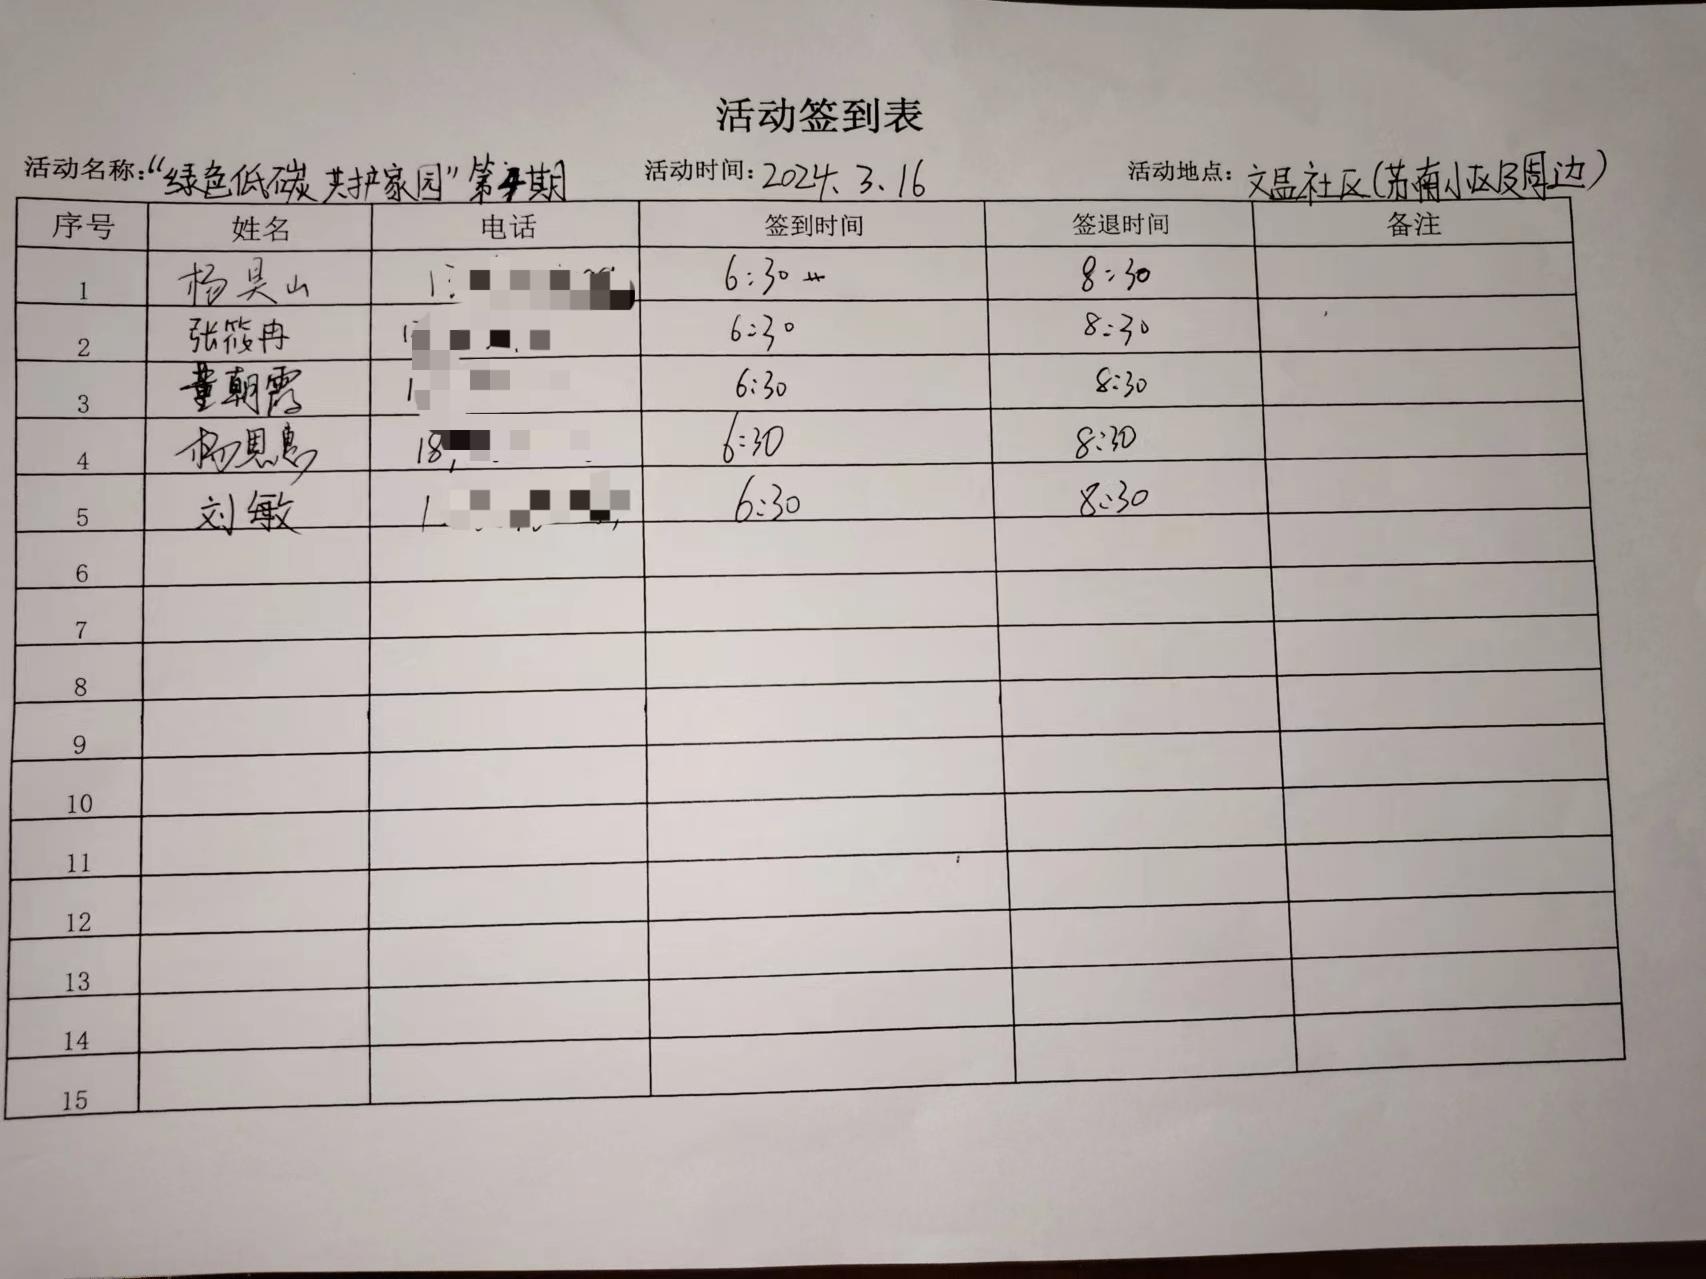 活动签到表
活动名称:“绿色低碳 共护家园”第 期 活动时间: 2024. 3. 16 活动地点: 文昷社区(苏南小区及周边)
序号 姓名 电话 签到时间 签退时间 备注
1 杨昊山 6:30 8:30
2 张筱冉 6:30 8:30
3 董朝霞 6:30 8:30
4 杨恩惠 18 6:30 8:30
5 刘敏 1 6:30 8:30
6
7
8
9
10
11
12
13
14
15